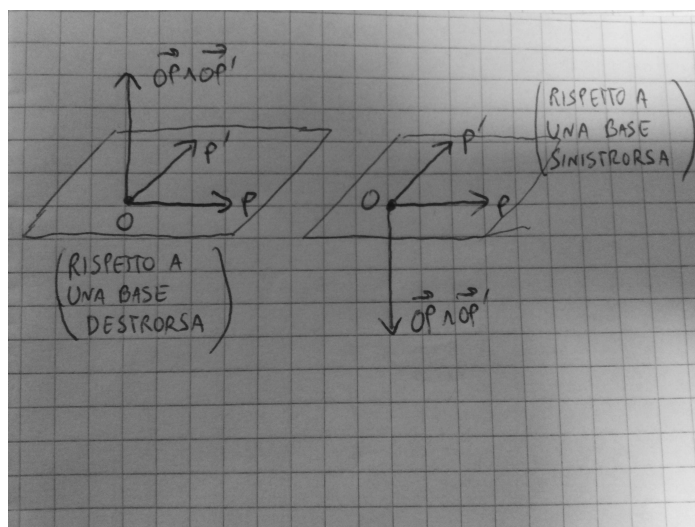 OP ∧ OP'
P'
O
P
(RISPETTO A
UNA BASE
DESTRORSA)
(RISPETTO A
UNA BASE
SINISTRORSA)
P'
O
P
OP ∧ OP'